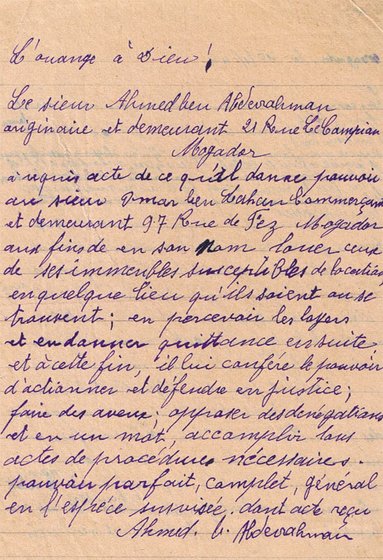 L'ouange à Dieu !
Le sieur Ahmed ben Abderahman
originaire et demeurant 21 Rue
Mogador
a uquis acte de ce qu'il donne pouvoir
au sieur Omar ben Lahcen Commerçant
et demeurant 97 Rue de Fez Mogador
aux fins de en son nom louer ceux
de ses immeubles susceptibles de location
en quelque lieu qu'ils soient ou se
trouvent ; en percevoir les loyers
et en donner quittance ensuite
et à cette fin, il lui confère le pouvoir
d'actionner et défendre en justice ;
faire des aveux ; opposer des dénégations
et en un mot, accomplir tous
actes de procédures nécessaires.
pouvoir parfait, complet, général
en l'espèce susvisée. dont acte reçu
Ahmed. b. Abderahman